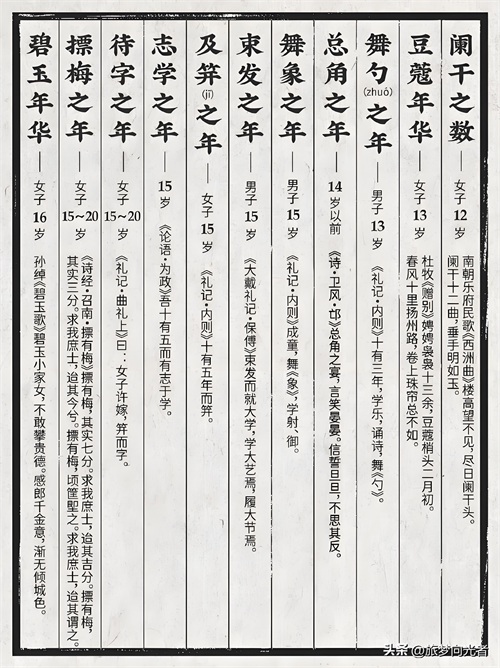 阑干之数——女子12岁
南朝乐府民歌《西洲曲》楼高望不见，尽日阑干头。
阑干十二曲，垂手明如玉。
豆蔻年华——女子13岁
杜牧《赠别》娉娉袅袅十三余，豆蔻梢头二月初。
春风十里扬州路，卷上珠帘总不如。
舞勺(zhuó)之年——男子13岁
《礼记·内则》十有三年，学乐，诵诗，舞《勺》。
总角之年——14岁以前
《诗·卫风·氓》总角之宴，言笑晏晏。信誓旦旦，不思其反。
舞象之年——男子15岁
《礼记·内则》成童，舞《象》，学射、御。
束发之年——男子15岁
《大戴礼记·保傅》束发而就大学，学大艺焉，履大节焉。
及笄(jī)之年——女子15岁
《礼记·内则》十有五年而笄。
志学之年——15岁
《论语·为政》吾十有五而有志于学。
待字之年——女子15~20岁
《礼记·曲礼上》曰：女子许嫁，笄而字。
摽梅之年——女子15~20岁
《诗经·召南·摽有梅》摽有梅，其实七分。求我庶士，迨其吉分。摽有梅，
其实三分。求我庶士，迨其今兮。摽有梅，顷筐塈之。求我庶士，迨其谓之。
碧玉年华——女子16岁
孙绰《碧玉歌》碧玉小家女，不敢攀贵德。感郎千金意，渐无倾城色。
头条 @旅梦问光者